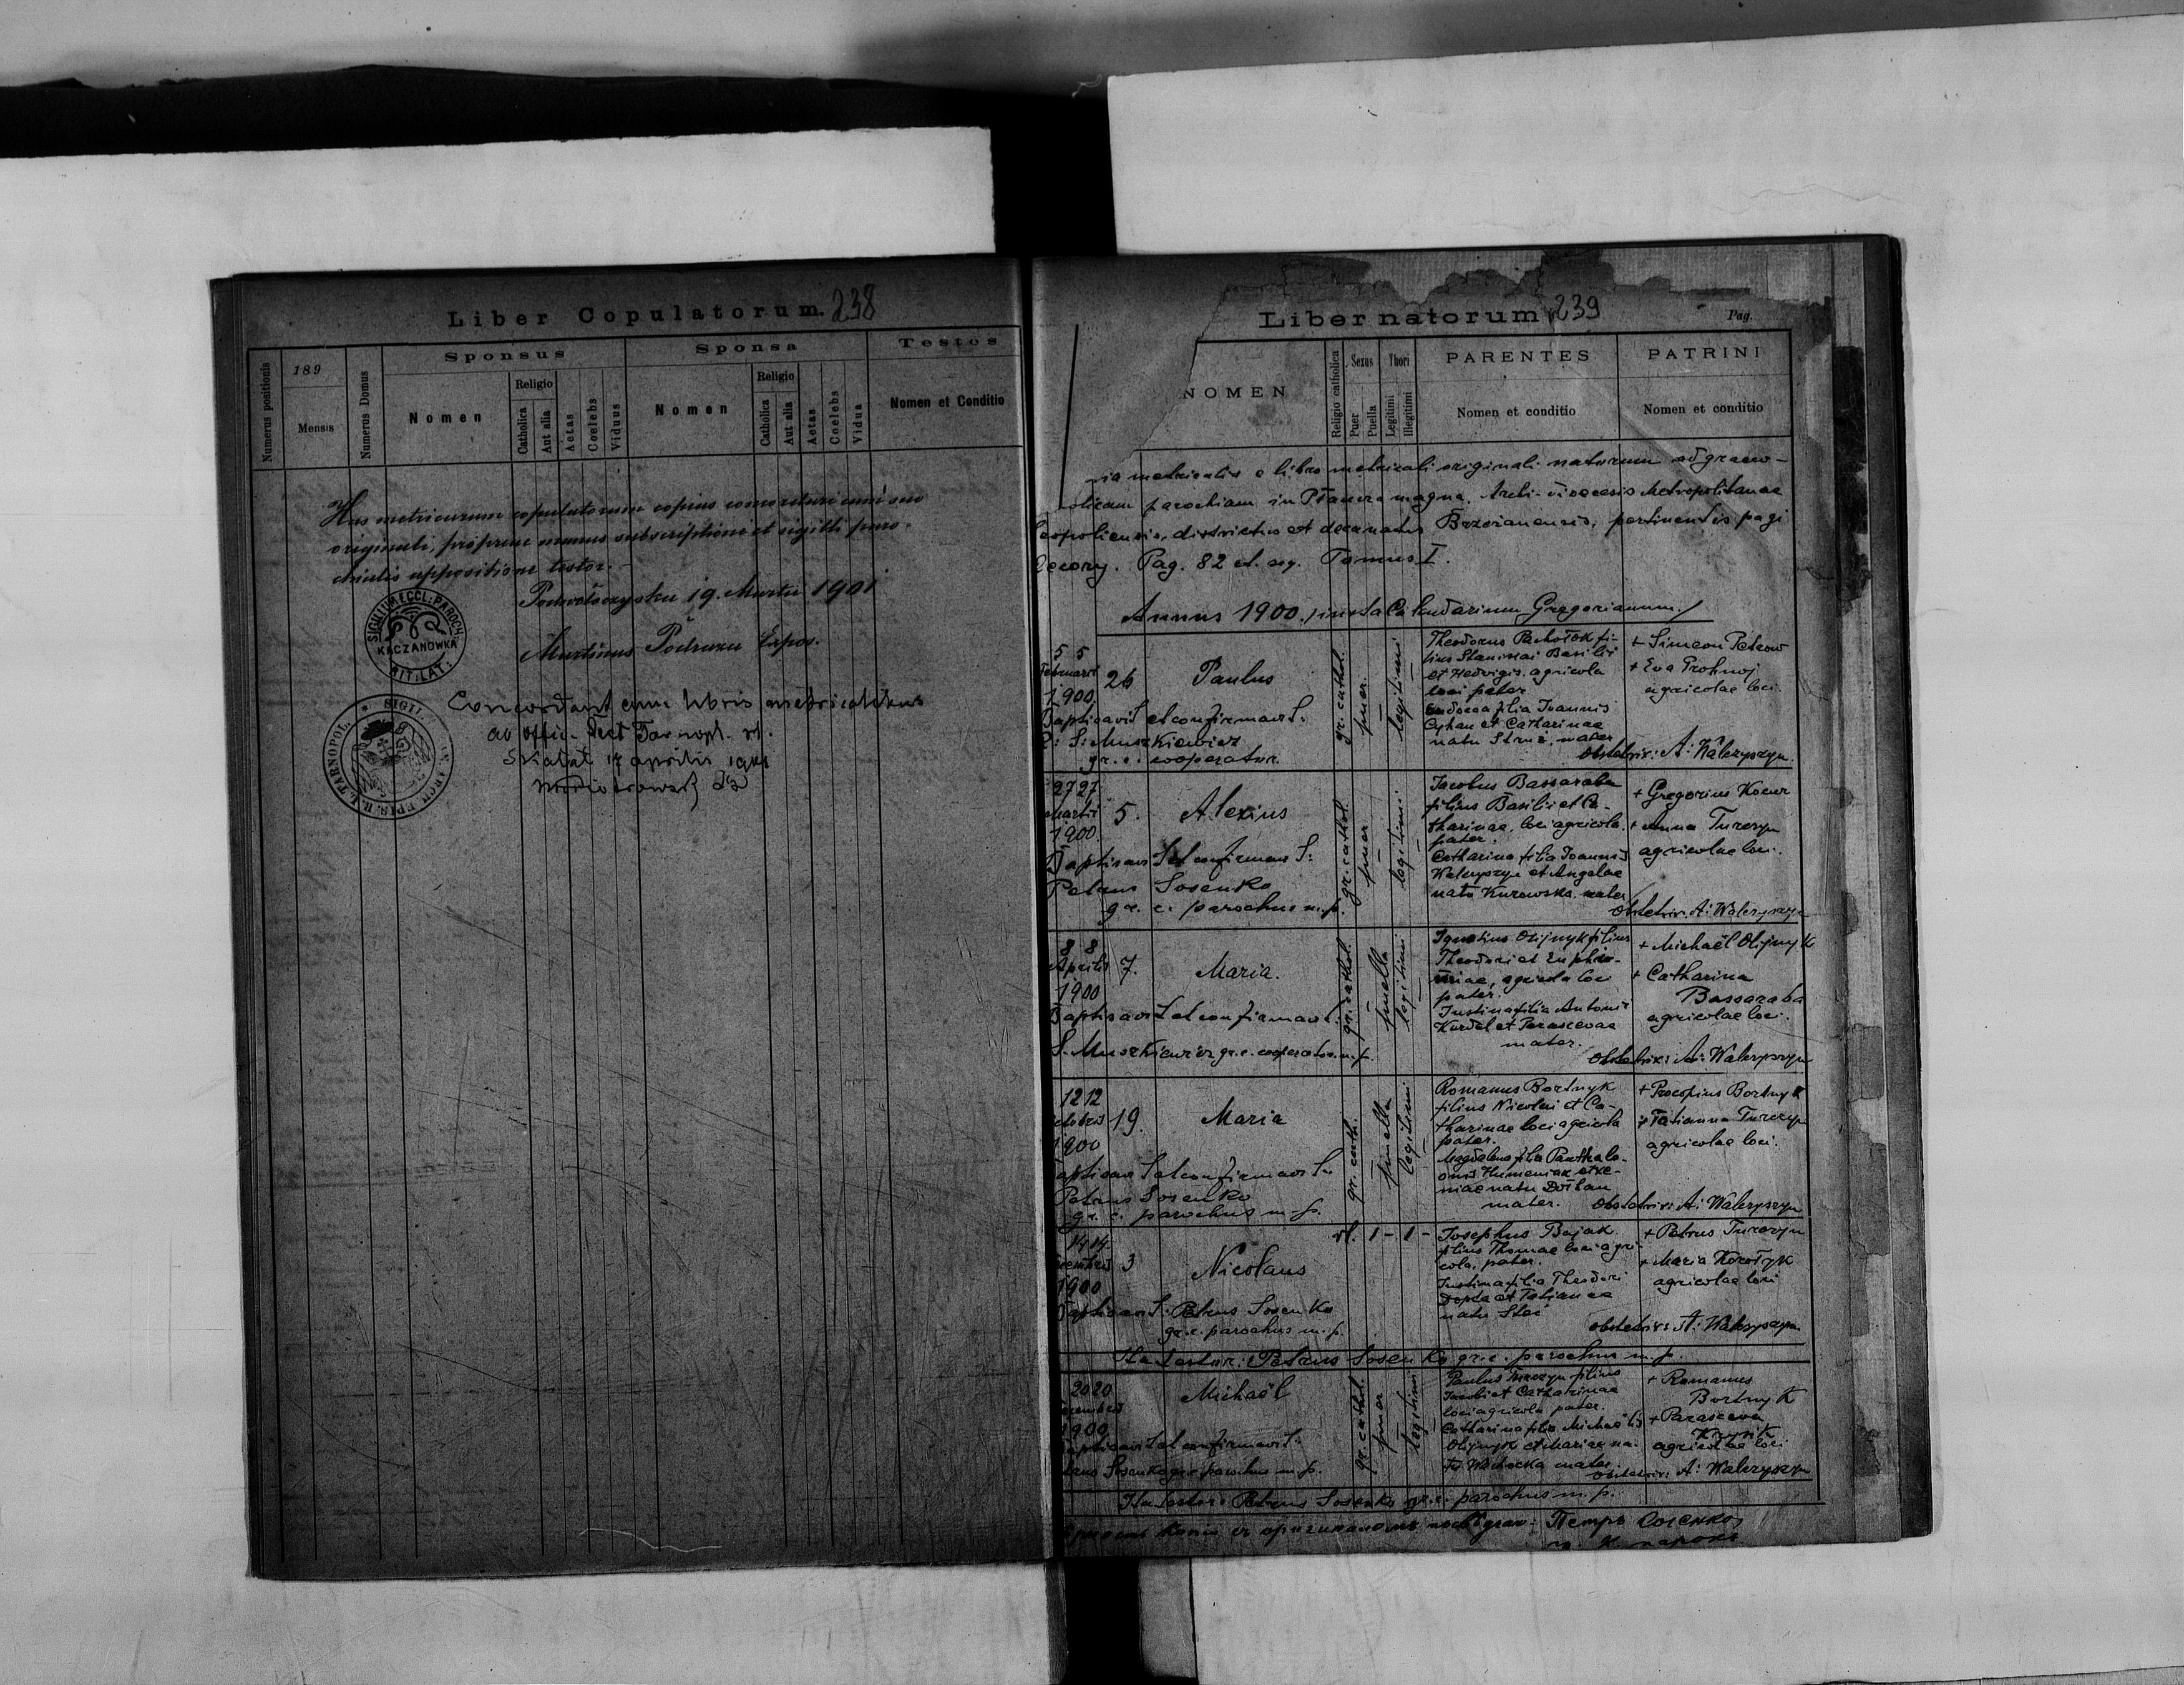 Liber Copulatorum. 238
Numerus positionis
189
Mensis
Numerus Domus
Sponsus
Nomen
Religio
Catholica
Aut alia
Aetas
Coelebs
Viduus
Sponsa
Nomen
Religio
Catholica
Aut alia
Aetas
Coelebs
Vidua
Testes
Nomen et Conditio
Has metricarum copulatorum copias concordari cum suo
originali, propriae manus subscriptione et sigilli paro-
chialis appositione testor.
Podwołoczyska 19. Martii 1901
Martinus Podraza Expos.
SIGILLUM ECCL. PAROCH.
KACZANOWKA
RIT. LAT.
Concordant cum libris metricalibus
Tarnopl. rl.
Skałat 17 aprilis 1901
SIGIL. TARNOPOL.
Liber natorum 239
Pag.
NOMEN
Religio catholica
Sexus
Puer
Puella
Thori
Legitimi
Illegitimi
PARENTES
Nomen et conditio
PATRINI
Nomen et conditio
metricalis e libro metricali originali natorum ad graeco-
parochiam in Płaucza magna, Archi-dioecesis Metropolitanae
leopoliensis, districtus et decanatus Brzezanensis, pertinentis pagi
Pag. 82 et seq. Tomus I.
Annus 1900. /juxta Calendarium Gregorianum./
5 5
Februarii
1900
26
Paulus
gr. cathol.
puer
legitimi
Theodorus Pachołok fi-
lius Basilii
et Hedvigis agricola
loci pater
Eudocia filia Joannis
Cyhan et Catharinae
nata Struś, mater
+ Simeon Petrow
+ Eva Prohnoj
agricolae loci.
Baptisavit et confirmavit:
S: Muszkiewicz
gr. c. cooperator.
Obstetrix: A: Waleryszyn
27 27
Martii
1900
5.
Alexius
gr. cathol.
puer
legitimi
Jacobus Bassaraba
filius Basilii et Ca-
tharinae, loci agricola
pater.
Catharina filia Joannis
Waleryszyn et Angelae
nata Kurowska. mater
+ Gregorius Kocur
+ Anna Turczyn
agricolae loci.
Baptisavit et confirmavit:
Petrus Sosenko
gr. c. parochus m. p.
Obstetrix: A: Waleryszyn
8 8
Aprilis
1900
7.
Maria.
gr. cathol.
puella
legitimi
Ignatius Olijnyk filius
Theodori et Euphro-
siniae, agricola loci
pater.
Justina filia Antonii
Kurdal et Parascevae
mater.
+ Michaël Olijnyk
+ Catharina
Bassaraba
agricolae loci.
Baptisavit et confirmavit:
S. Muszkiewicz gr. c. cooperator m. p.
Obstetrix: A: Waleryszyn
12 12
Octobris
1900
19.
Maria
gr. cath.
puella
legitimi
Romanus Bortnyk
filius Nicolai et Ca-
tharinae loci agricola
pater.
Magdalena filia Panthale-
onis Humeniak et Xe-
niae nata Dołhan
mater.
+ Procopius Bortnyk
+ Tatianna Turczyn
agricolae loci.
Baptisavit et confirmavit:
Petrus Sosenko
gr. c. parochus m. p.
Obstetrix: A: Waleryszyn
14 14
1900
3
Nicolaus
rl. 1 - 1 -
Josephus Bajak
filius Thomae loci agri-
cola, pater.
Justina filia Theodori
et Tatiannae
nata
+ Petrus Turczyn
+ Maria Korołyk
agricolae loci
Baptisavit: Petrus Sosenko
gr. c. parochus m. p.
Obstetrix: A: Waleryszyn
Ita testor: Petrus Sosenko gr. c. parochus m. p.
20 20
1900
Michaël
gr. cathol.
puer
legitimi
Paulus Turczyn filius
Jacobi et Catharinae
loci agricola pater.
Catharina filia Michaëlis
Olijnyk et Mariae na-
ta mater.
+ Romanus
Bortnyk
+ Parasceva
agricolae loci
Baptisavit et confirmavit:
Petrus Sosenko gr. c. parochus m. p.
Obstetrix: A: Waleryszyn
Ita testor: Petrus Sosenko gr. c. parochus m. p.
Петръ Сосенко